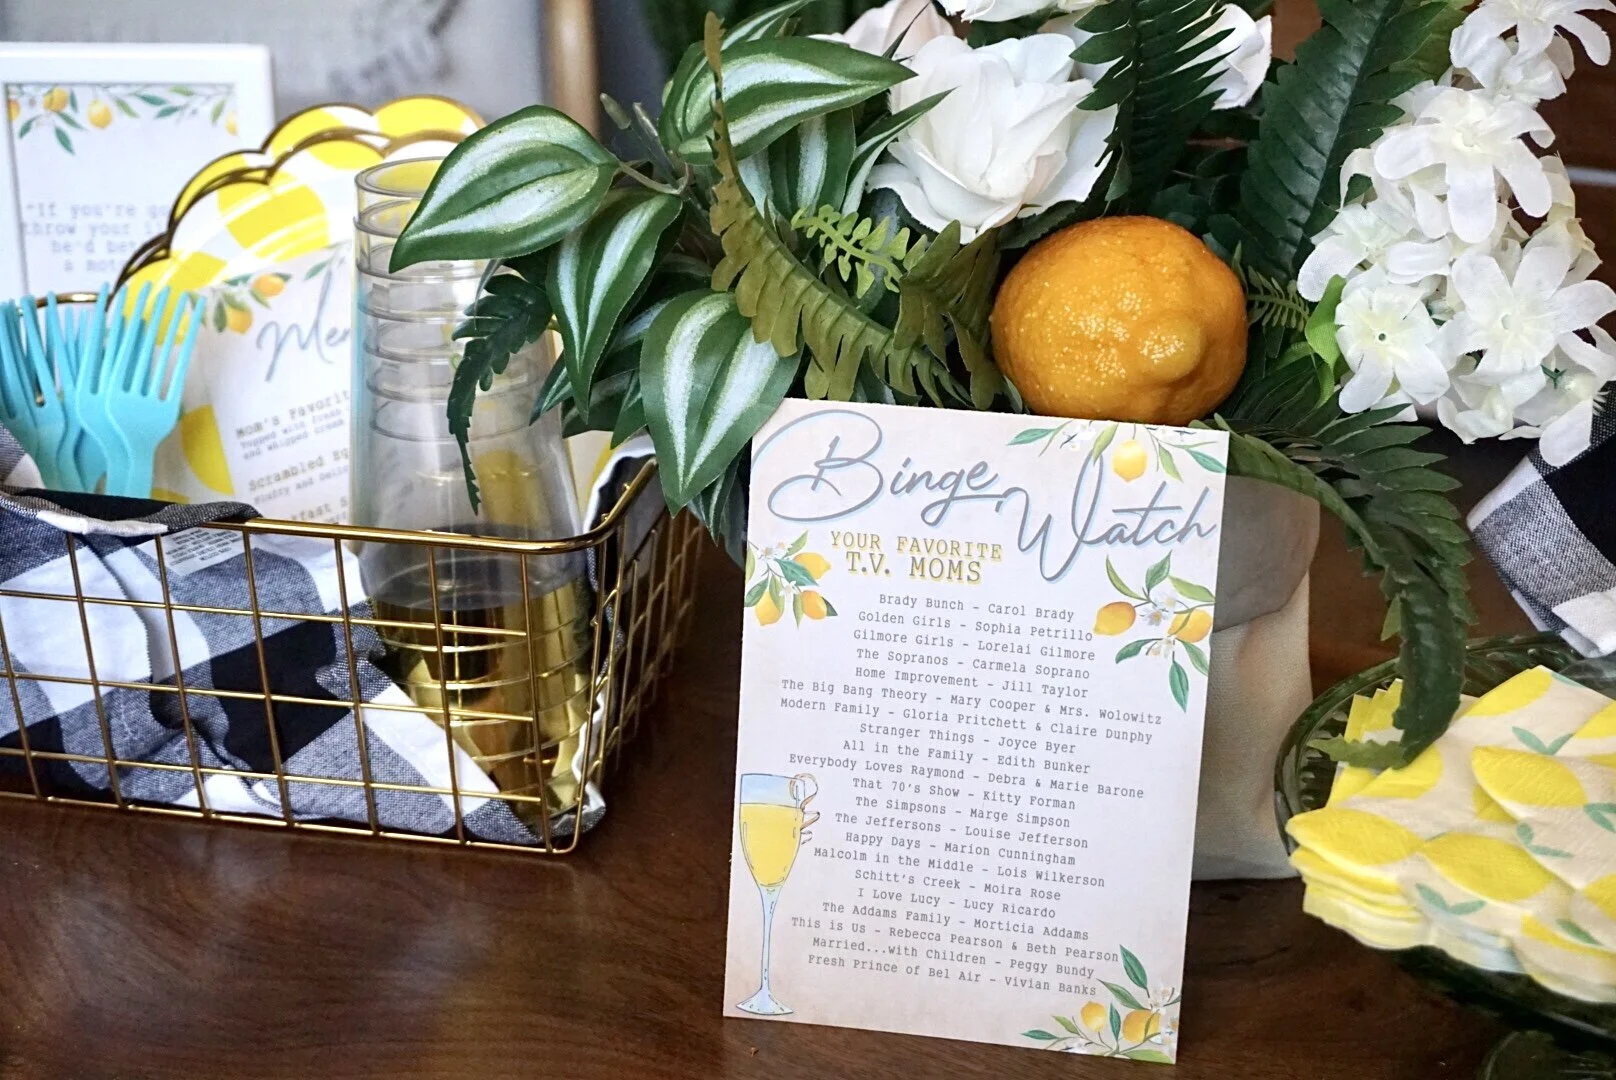 "If you're go
throw your
he'd bet
a mot
Men
Mom's Favorit
Topped with fresh
and whipped cream
Scrambled Eg
Fluffy and
Binge Watch
YOUR FAVORITE
T.V. MOMS
Brady Bunch - Carol Brady
Golden Girls - Sophia Petrillo
Gilmore Girls - Lorelai Gilmore
The Sopranos - Carmela Soprano
Home Improvement - Jill Taylor
The Big Bang Theory - Mary Cooper & Mrs. Wolowitz
Modern Family - Gloria Pritchett & Claire Dunphy
Stranger Things - Joyce Byer
All in the Family - Edith Bunker
Everybody Loves Raymond - Debra & Marie Barone
That 70's Show - Kitty Forman
The Simpsons - Marge Simpson
The Jeffersons - Louise Jefferson
Happy Days - Marion Cunningham
Malcolm in the Middle - Lois Wilkerson
Schitt's Creek - Moira Rose
I Love Lucy - Lucy Ricardo
The Addams Family - Morticia Addams
This is Us - Rebecca Pearson & Beth Pearson
Married...with Children - Peggy Bundy
Fresh Prince of Bel Air - Vivian Banks